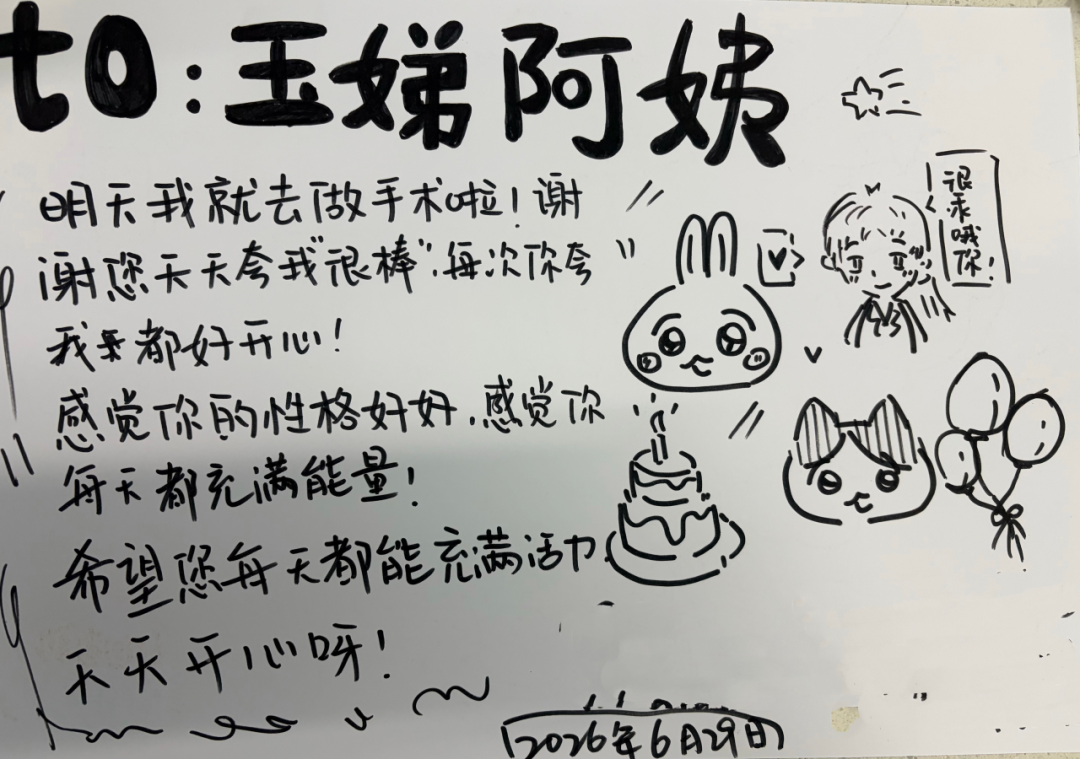 to:玉娣阿姨
明天我就去做手术啦!谢
谢您天天夸我“很棒”.每次你夸
我我都好开心!
感觉你的性格好好.感觉你
每天都充满能量!
希望您每天都能充满活力.
天天开心呀!
很乖哦你!
2026年6月29日